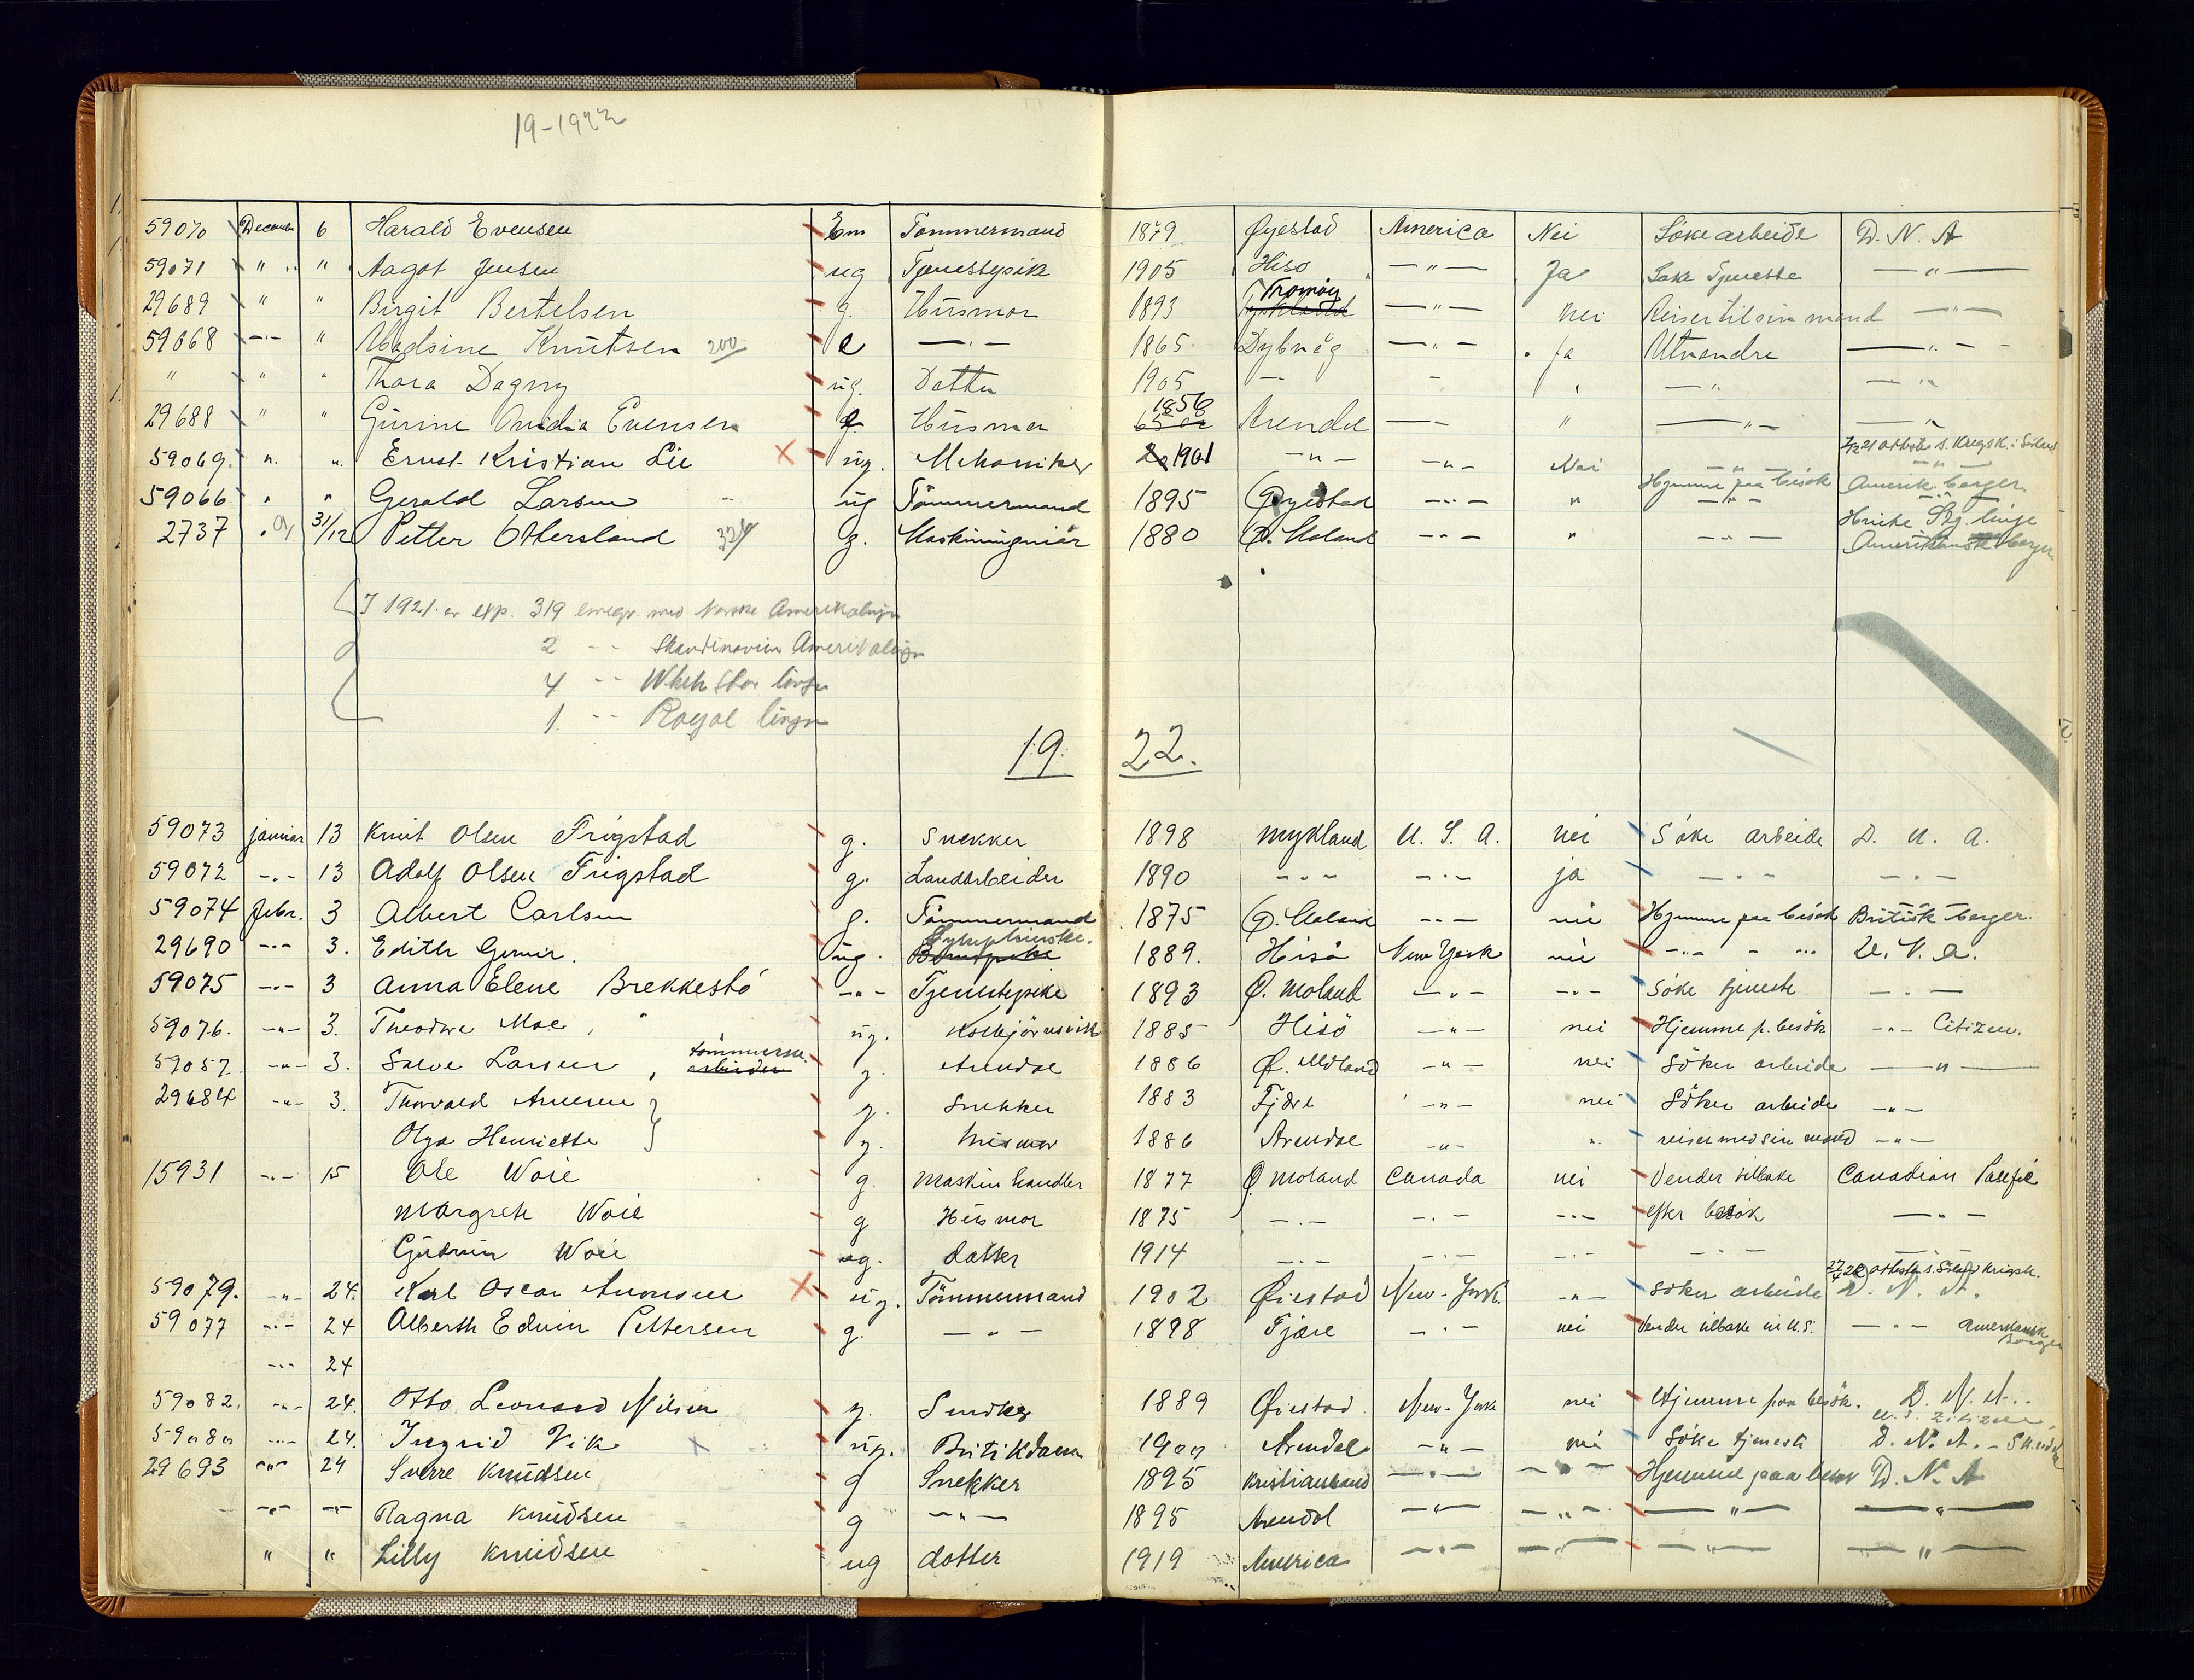 19-1922
59070 December 6 Harald Evensen Em Tømmermand 1879 Øyestad America Nei Søke arbeide D. N. A
59071 " " " Aagot Jensen ug Tjenestepike 1905 Hisø —"— Ja Søke Tjeneste —"—
29689 " " Birgit Bertelsen g. Husmor 1893 Tromøy —"— Nei Reiser til sin mand —"—
59068 —"— " Madsine Knutsen 200 e —"— 1865 Dybvåg —"— Ja Utvandre —"—
" " " Thora Dagny ug. Datter 1905 — — " —"— —"—
29688 " " Gurine Amidia Evensen e Husmor 1856 Arendal —"— " —"— —"—
59069. " " Ernst Kristian Lie X ug. Mekaniker 1901 —"— —"— Nei —"—
59066 " " Gerald Larsen ug Tömmermand 1895 Øyestad —"— " Hjemme paa besök Amerik. borger
2737 31/12 Petter Ottersland 324 g. Maskiningeniör 1880 Ø. Moland —"— " —"— Amerikansk borger
I 1921 er exp. 319 emegr. med Norske Amerikalinje
2 -- Skandinavien Amerikalinje
4 -- White Star linje
1 -- Royal linje
19 22.
59073 januar 13 Knut Olsen Frigstad g. Snekker 1898 Mykland U. S. A. nei Söke arbeide D. N. A.
59072 -"- 13 Adolf Olsen Frigstad g. Landarbeider 1890 -"- -"- ja -"- -"-
59074 febr. 3 Albert Carlsen g. Tömmermand 1875 Ø. Moland -"- nei Hjemme paa besök Britisk borger.
29690 -"- 3. Edith Gumir. ug. 1889. Hisö New York nei -"- D. N. A.
59075 -"- 3 Anna Elene Brekkestö -"- Tjenestepike 1893 Ø. Moland -"- -"- Söke tjeneste -"-
59076. -"- 3. Theodore Moe, ug. Kolbjörnsvik 1885 Hisö -"- nei Hjemme p. besök -"- Citizen.
59057. -"- 3. Salve Larsen, tömmerm. arbeider g. Arendal 1886 Ø. Moland -"- nei Söker arbeide —"—
29684 -"- 3. Thorvald Arnesen g. Snekker 1883 Fjære -"- nei Söker arbeide -"-
Olga Henriette g. husmor 1886 Arendal -"- ". reiser med sin mand -"-
15931 -"- 15 Ole Woie g. Maskinhandler 1877 Ø. Moland Canada nei Vender tilbake Canadian Pacific
Margrete Woie g Husmor 1875 -"- -"- -"- efter besök -"-
Gudrun Woie ug. datter 1914 -"- -"- -"- -"- -"-
59079. -"- 24. Karl Oscar Aronsen X ug. Tömmermand 1902 Öiestad New-York. -"- Söker arbeide D. N. A.
59077 -"- 24 Alberth Edvin Pettersen g. -"- 1898 Fjære -"- nei Vender tilbake til U.S. -"- amerikansk Borger
-"- 24
59082. -"- 24. Otto Leonard Nilsen g. Snedker 1889 Öiestad New-York nei Hjemme paa besök. D. N. A..
U.S. Zitizen
59080 -"- 24. Ingrid Vik X ug. Butikdame 1900 Arendal -"- nei Söke tjeneste D. N. A. -
29693 -"- 24 Sverre Knudsen g Snekker 1895 Kristiansand -"- -"- Hjemme paa besøk D. N. A
-"- -"- Ragna Knudsen g -"- 1895 Arendal -"- -"- —"— —"—
" " Lilly Knudsen ug datter 1919 America -"- -"- -"- —"—